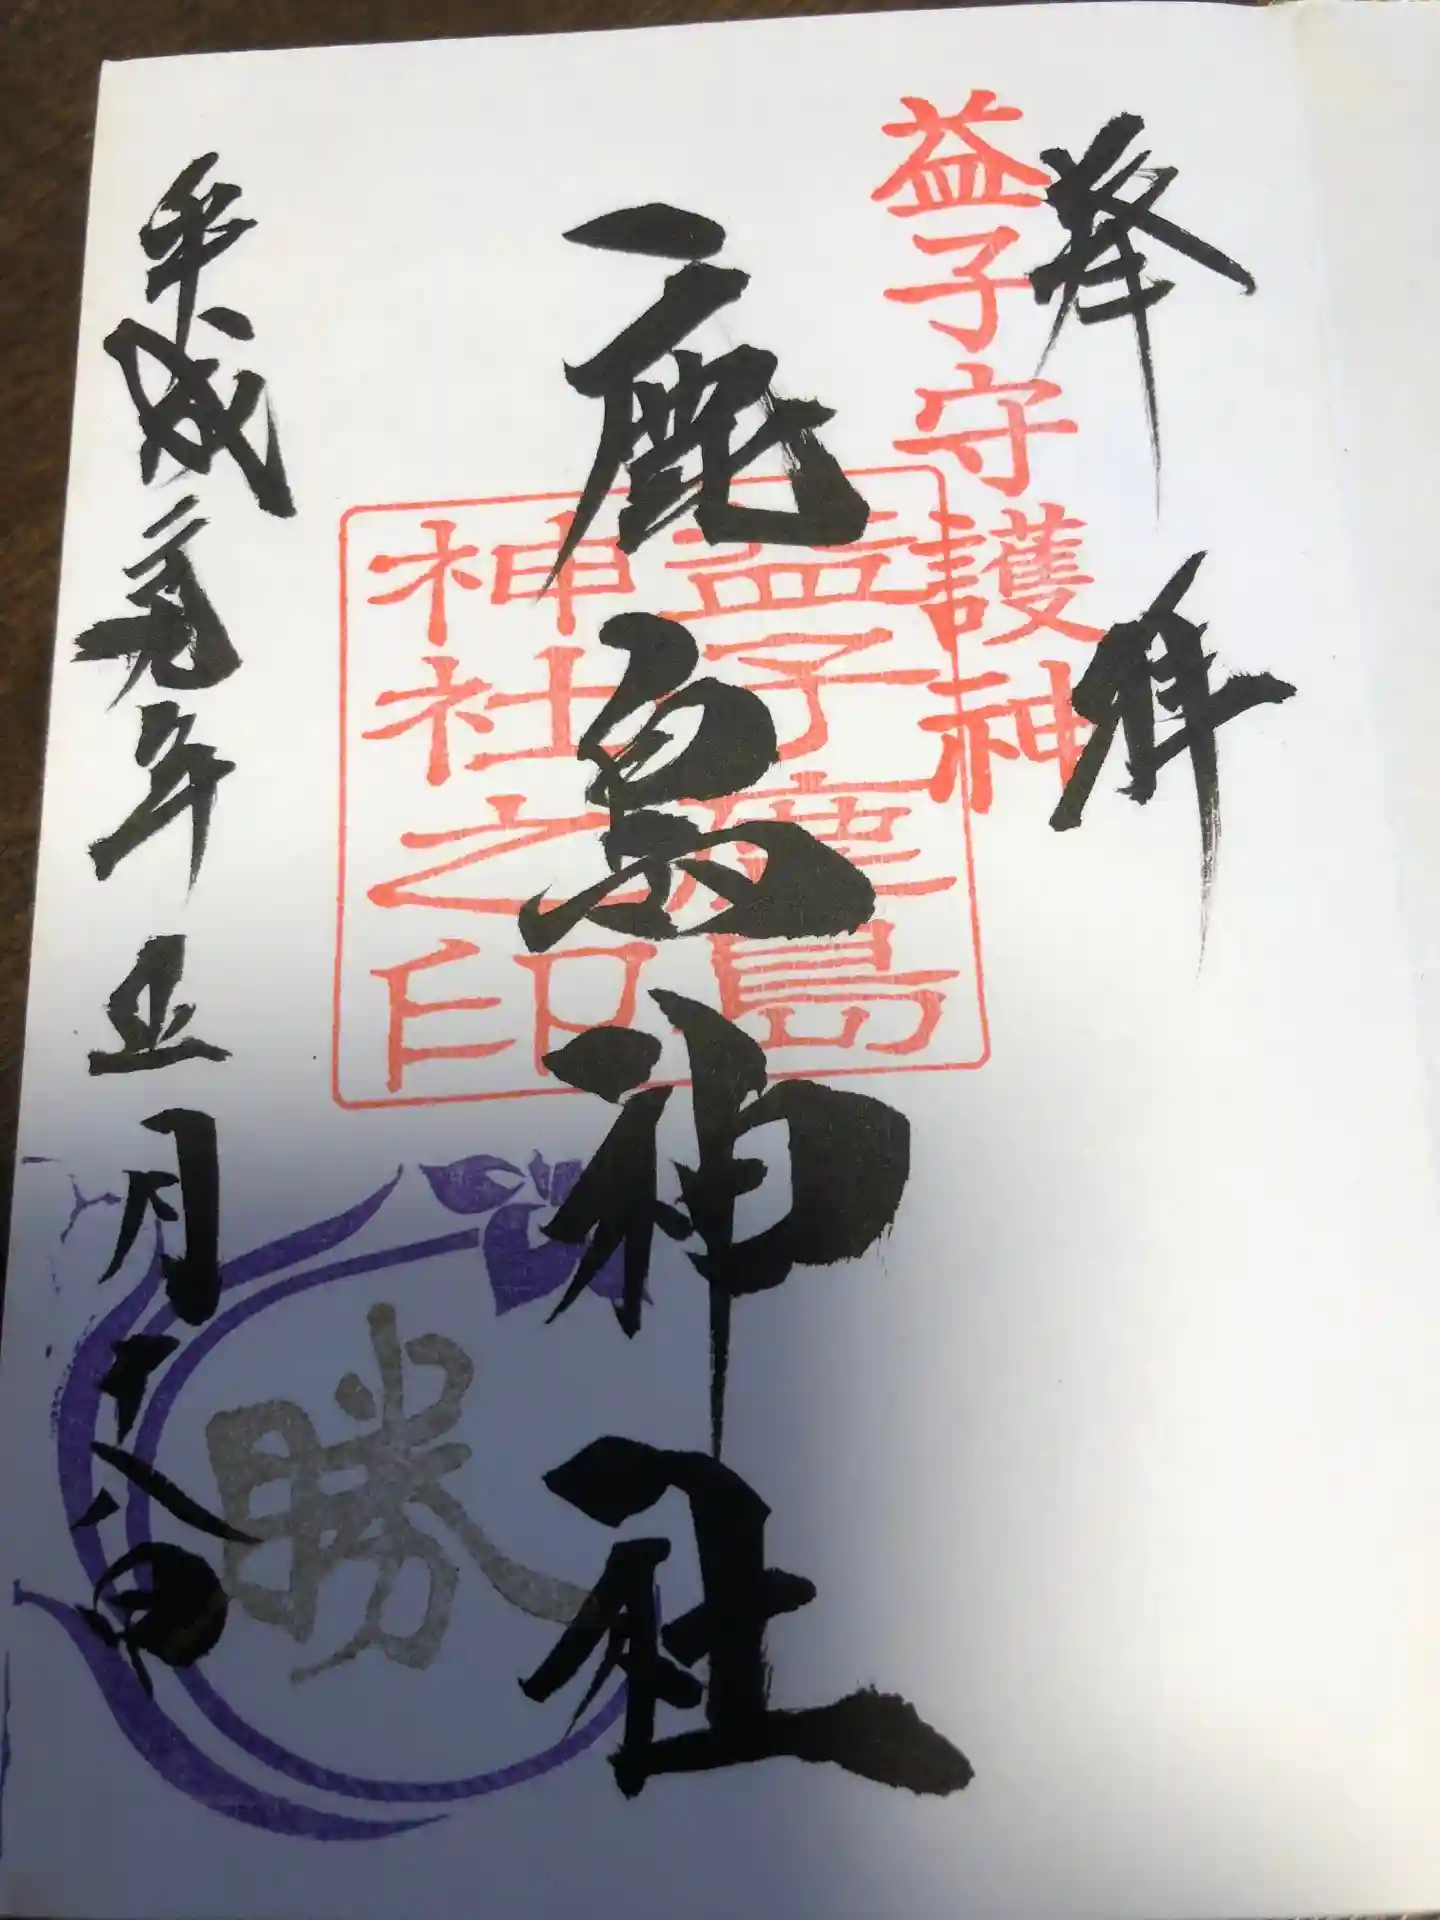 奉拝
益子守護神
鹿島神社
益子鹿島
神社之印
平成年月十八日
勝